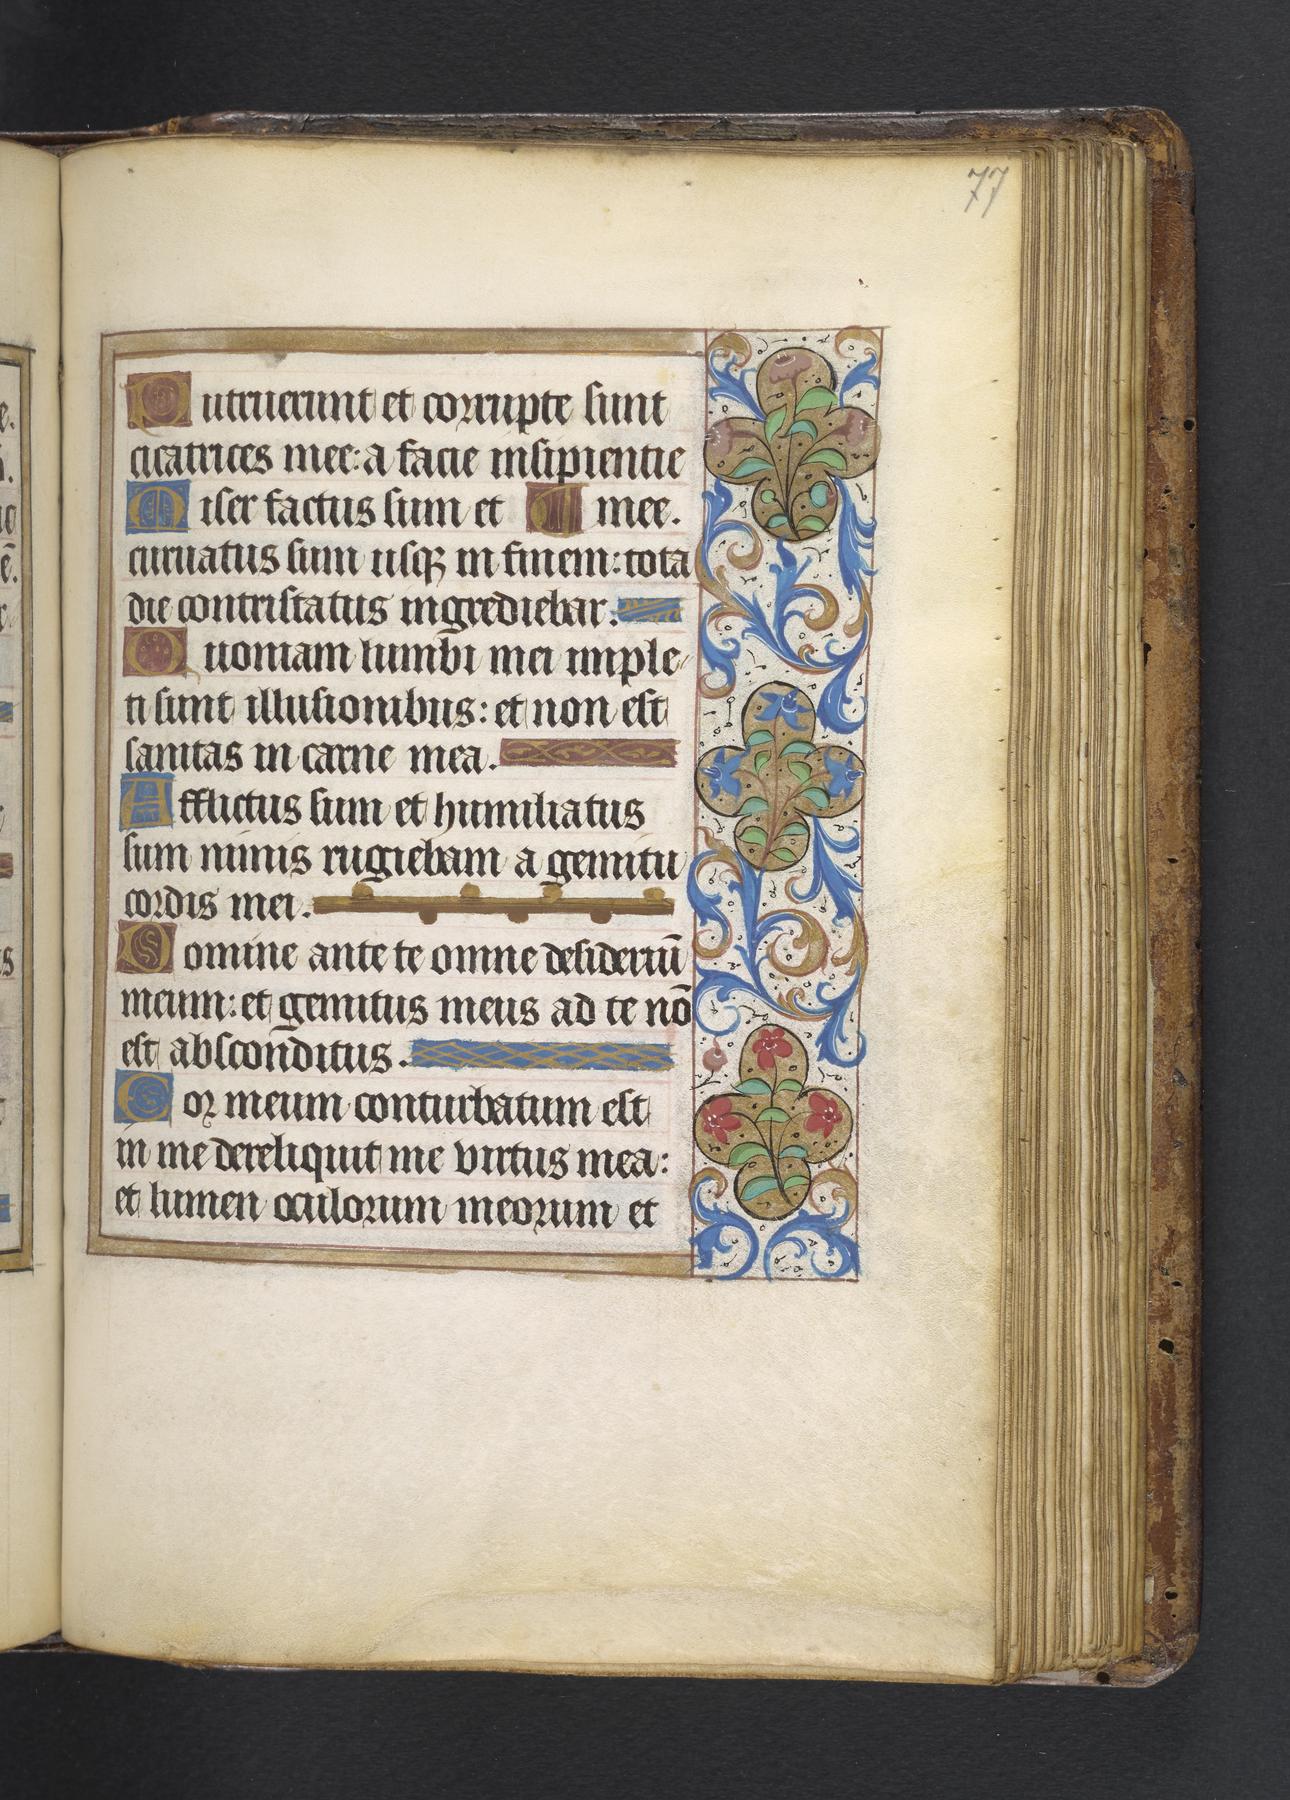 77
Putruerunt et corrupte sunt
cicatrices mee: a facie insipientie
Miser factus sum et mee.
curuatus sum usqꝫ in finem: tota
die contristatus ingrediebar.
Quoniam lumbi mei imple
ti sunt illusionibus: et non est
sanitas in carne mea.
Afflictus sum et humiliatus
sum nimis rugiebam a gemitu
cordis mei.
Domine ante te omne desideriū
meum: et gemitus meus ad te nō
est absconditus.
Cor meum conturbatum est
in me dereliquit me virtus mea:
et lumen oculorum meorum et